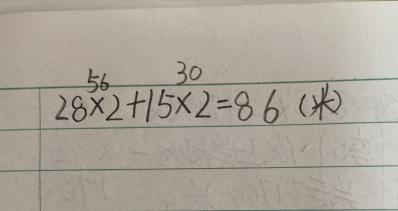 56 30
28×2+15×2=86(米)